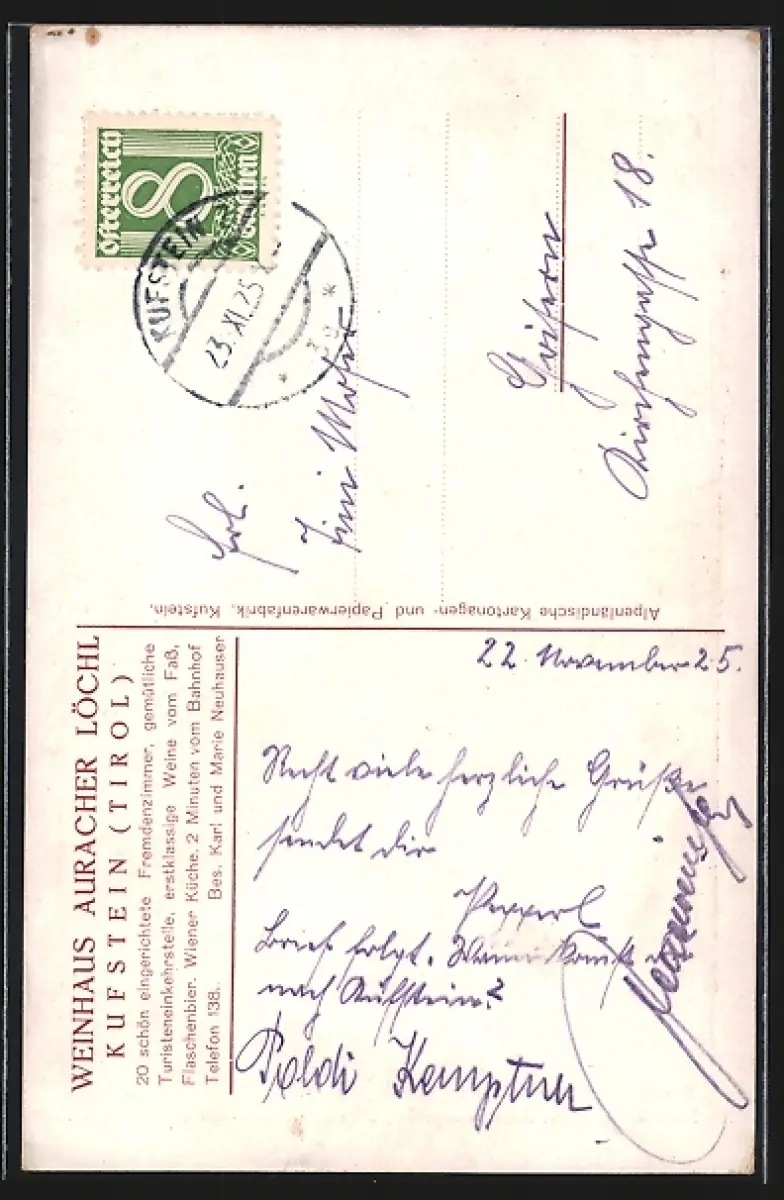 WEINHAUS AURACHER LÖCHL
KUFSTEIN (TIROL)
20 schön eingerichtete Fremdenzimmer, gemütliche
Turisteneinkehrstelle, erstklassige Weine vom Faß,
Flaschenbier. Wiener Küche. 2 Minuten vom Bahnhof
Telefon 138. Bes. Karl und Marie Neuhauser
22. November 25.
Recht viele herzliche Grüße
sendet dir
Pepperl
Brief folgt. Wann komst
nach Kufstein?
Poldi Kemptner
Alpenländische Kartonagen- und Papierwarenfabrik, Kufstein.
Österreich
8
Groschen
KUFSTEIN
23.XI.25
* *
Frl.
Moser
Goisern
Kirchengasse 18.